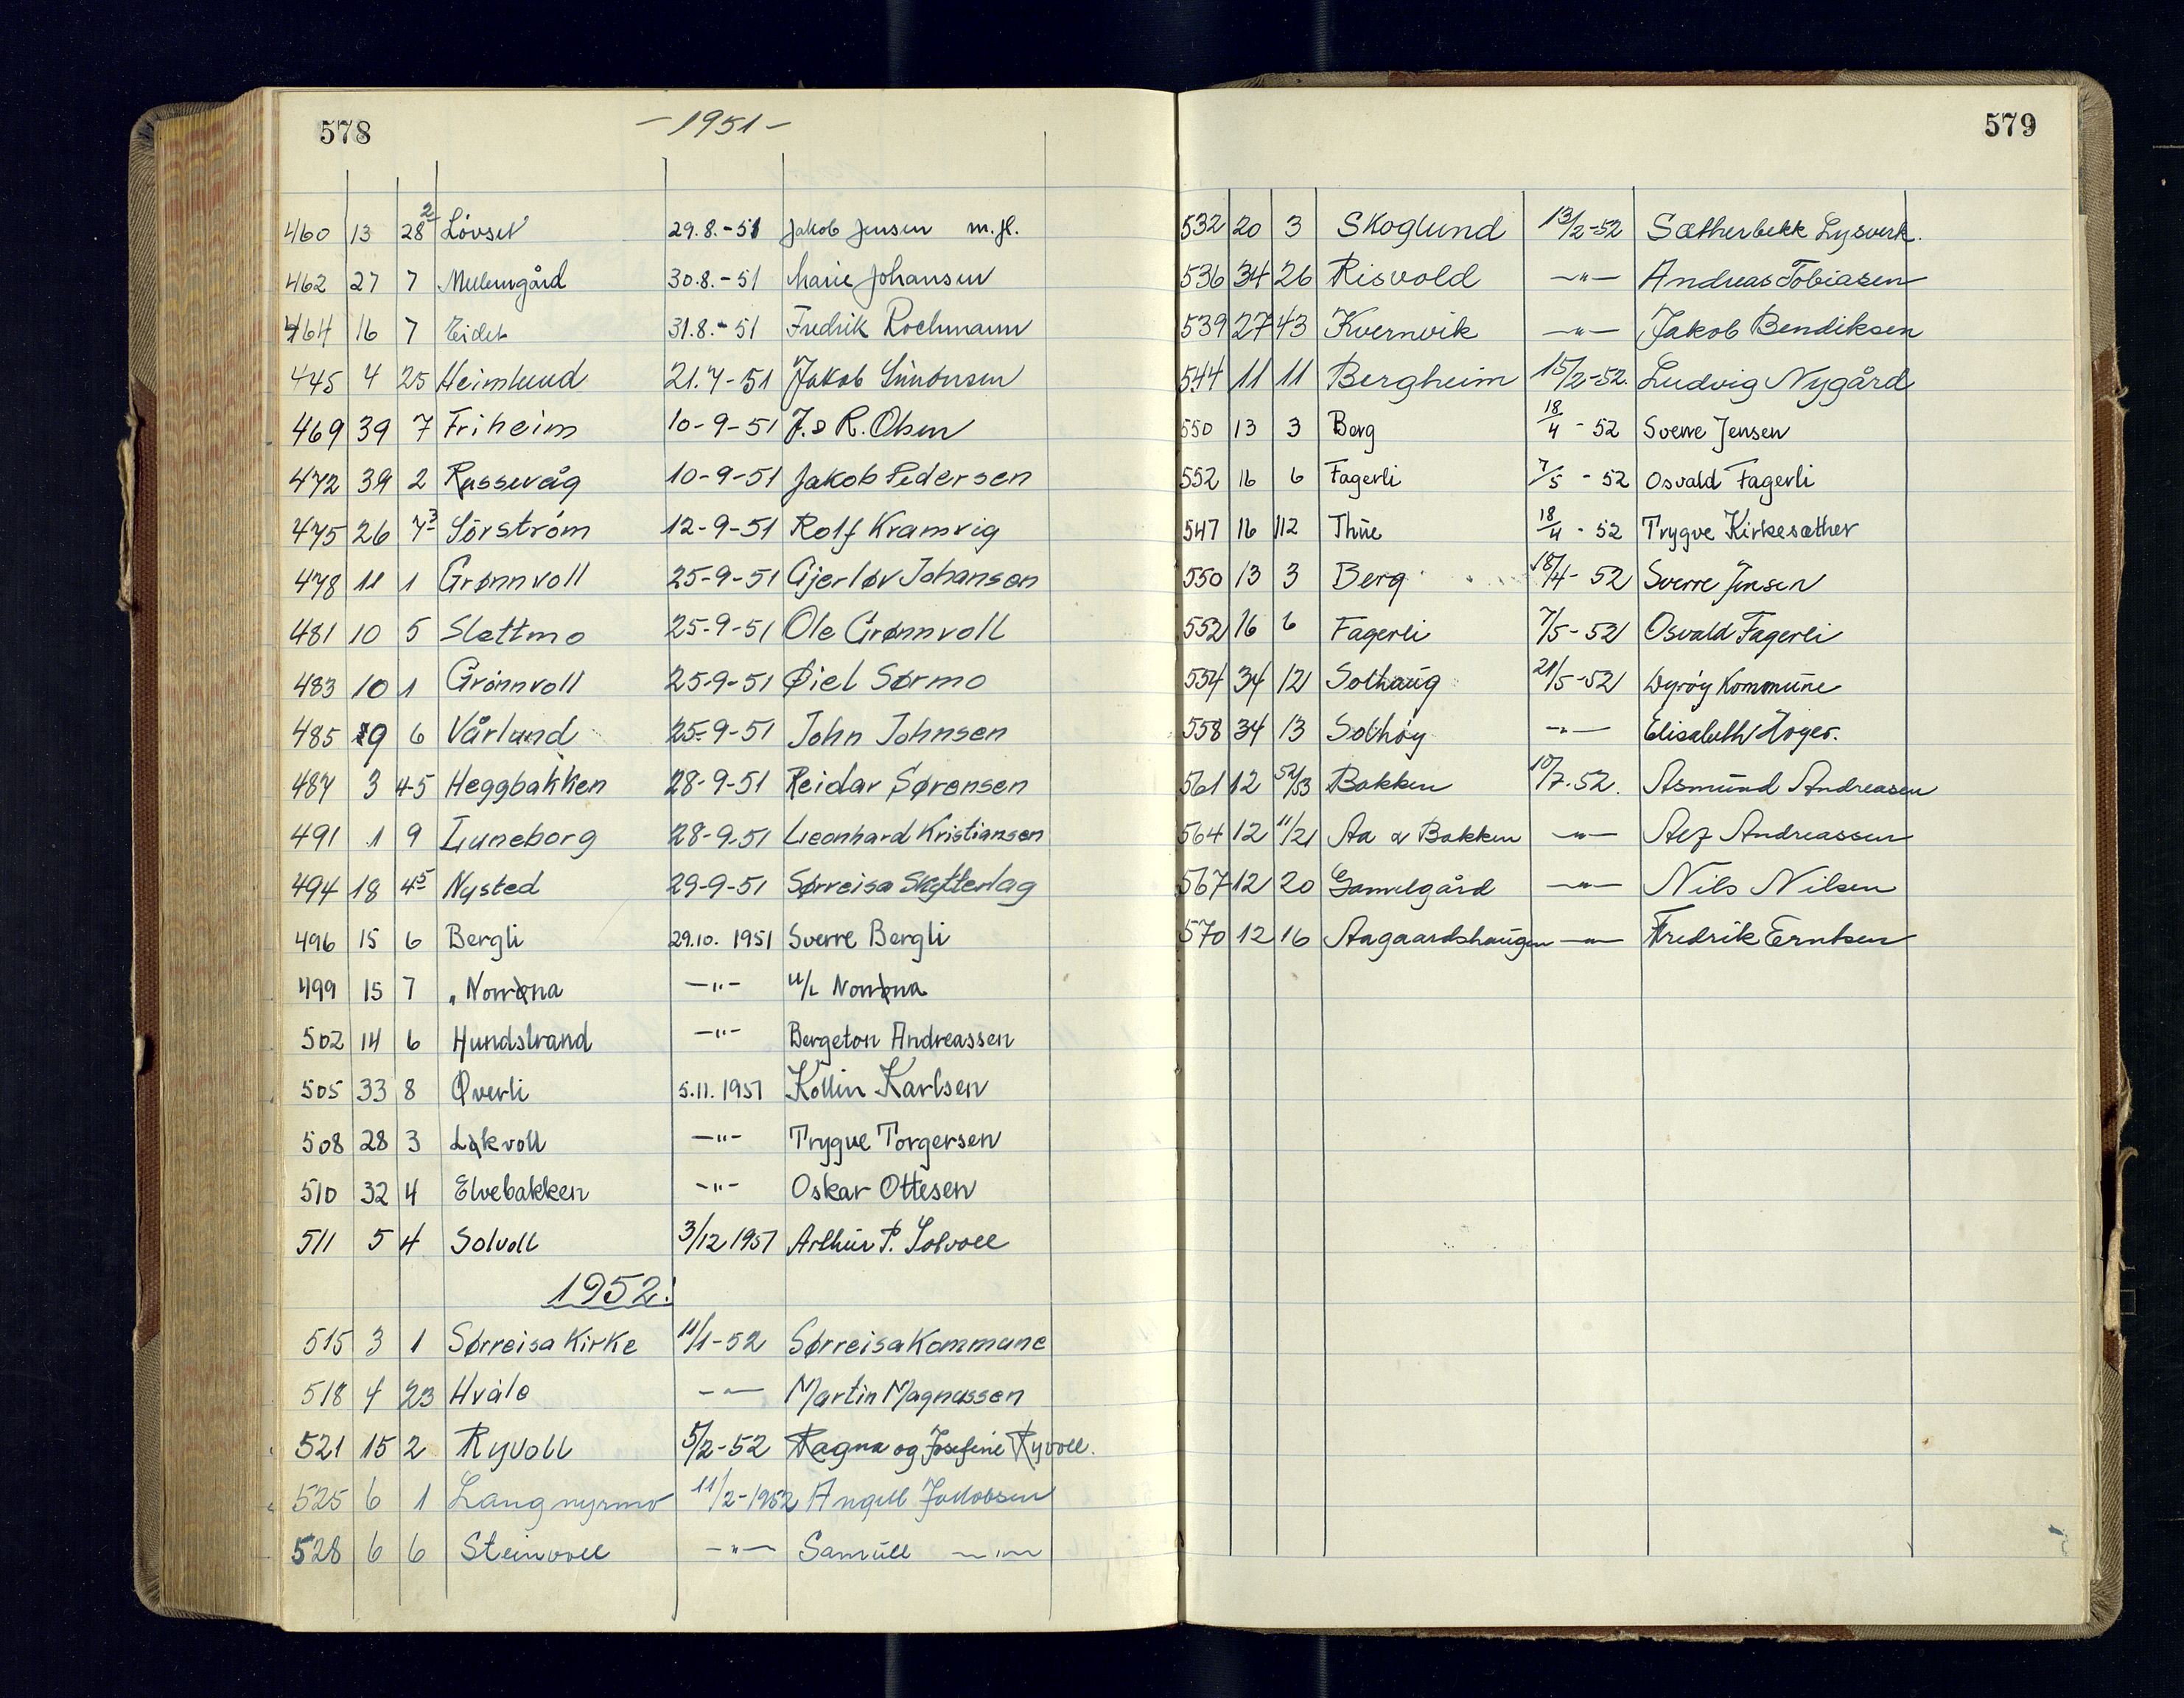 578
- 1951 -
460 13 28² Lövset 29.8.-51 Jakob Jensen m.fl.
462 27 7 Mellemgård 30.8.-51 Marie Johansen
464 16 7 Eidet 31.8.-51 Fredrik Rochmann
445 4 25 Heimlund 21.7-51 Jakob Simonsen
469 39 7 Friheim 10-9-51 J. & R. Olsen
472 39 2 Russevåg 10-9-51 Jakob Pedersen
475 26 7³ Sörström 12-9-51 Rolf Kramvig
478 11 1 Grønnvoll 25-9-51 Gjerløv Johansen
481 10 5 Slettmo 25-9-51 Ole Grønnvoll
483 10 1 Grönnvoll 25-9-51 Øiel Sørmo
485 9 6 Vårlund 25-9-51 John Johnsen
487 3 45 Heggbakken 28-9-51 Reidar Sørensen
491 1 9 Luneborg 28-9-51 Leonhard Kristiansen
494 18 4⁵ Nysted 29-9-51 Sørreisa Skytterlag
496 15 6 Bergli 29.10. 1951 Sverre Bergli
499 15 7 „Norrøna -"- u/l Norrøna
502 14 6 Hundstrand -"- Bergeton Andreassen
505 33 8 Øverli 5.11. 1951 Kollin Karlsen
508 28 3 Løkvoll -"- Trygve Torgersen
510 32 4 Elvebakken -"- Oskar Ottesen
511 5 4 Solvoll 3/12 1951 Arthur P. Solvoll
1952:
515 3 1 Sørreisa Kirke 11/1-52 Sørreisa Kommune
518 4 23 Hvåle -"- Martin Magnussen
521 15 2 Ryvoll 5/2-52 Ragna og Josefine Ryvoll.
525 6 1 Langmyrmo 11/2-1952 Angell Jakobsen
528 6 6 Steinvoll -"- Samüll -"-
579
532 20 3 Skoglund 13/2-52 Sætherbekk Lysverk.
536 34 26 Risvold -"- Andreas Tobiasen
539 27 43 Kvernvik -"- Jakob Bendiksen
544 11 11 Bergheim 15/2-52. Ludvig Nygård
550 13 3 Berg 18/4 - 52 Sverre Jensen
552 16 6 Fagerli 7/5 - 52 Osvald Fagerli
547 16 112 Thüe 18/4 - 52 Trygve Kirkesæther
550 13 3 Berg 18/4- 52 Sverre Jensen
552 16 6 Fagerli 7/5-52 Osvald Fagerli
554 34 12 Solhaug 21/5-52 Dyrøy Kommune
558 34 13 Solhøy -"- Elisabeth Høger.
561 12 52/53 Bakken 10/7.52. Asmund Andreasen
564 12 11/21 Aa & Bakken -"- Alf Andreassen
567 12 20 Gamelgård -"- Nils Nilsen
570 12 16 Aagaardshaugen -"- Fredrik Erntsen